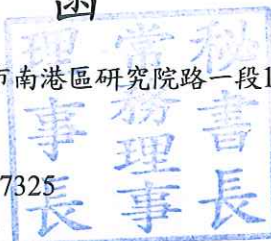 函
市南港區研究院路一段1
7325
理事長
常務理事
秘書長